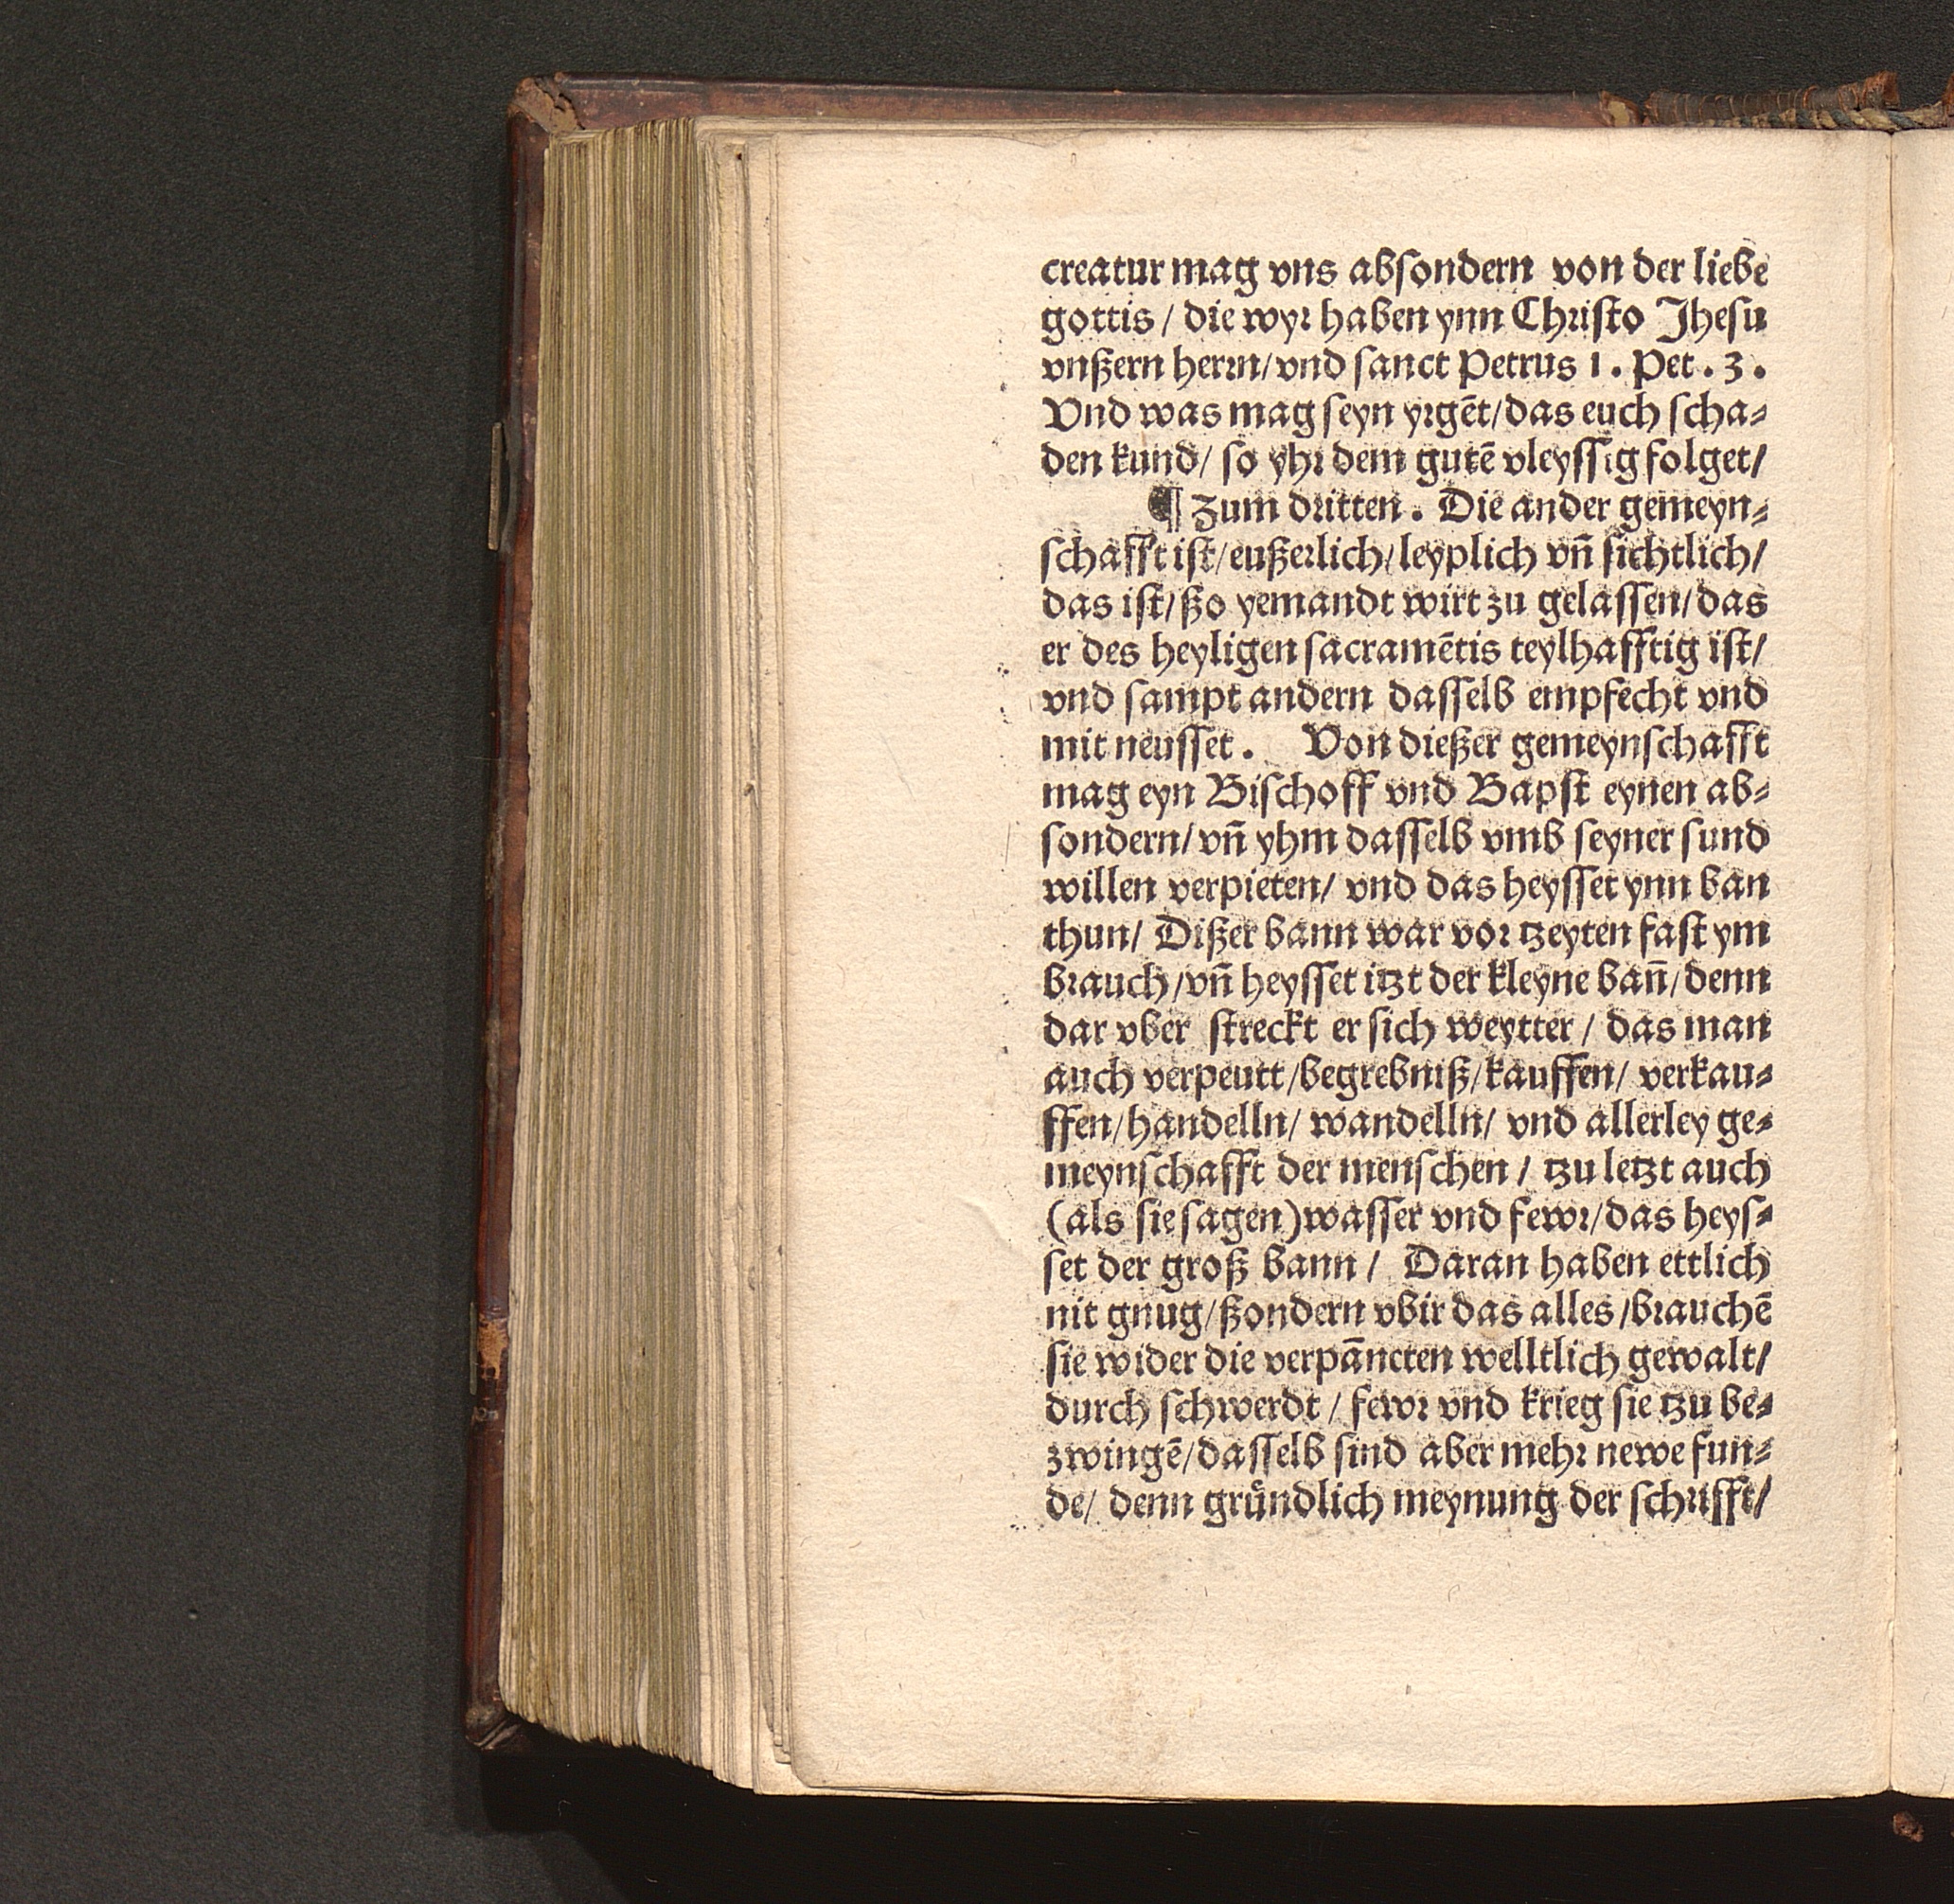 creatur mag vns abſondern von der liebe
gottis / die wyr haben ynn Chriſto Jheſu
vnßern herrn/ vnd ſanct Petrus 1. Pet. 3.
Vnd was mag ſeyn yrgēt/ das euch ſcha⸗
den kund/ ſo yhr dem gutē vleyſſig folget/
¶ Zum dritten. Die ander gemeyn⸗
ſchafft iſt/ eußerlich/ leyplich vn̄ ſichtlich/
das iſt/ ßo yemandt wirt zu gelaſſen/ das
er des heyligen ſacramētis teylhafftig iſt/
vnd ſampt andern daſſelb empfecht vnd
mit neuſſet. Von dießer gemeynſchafft
mag eyn Biſchoff vnd Bapſt eynen ab⸗
ſondern/ vn̄ yhm daſſelb vmb ſeyner ſund
willen verpieten/ vnd das heyſſet ynn ban
thun/ Dißer bann war vor tzeyten faſt ym
brauch/ vn̄ heyſſet itzt der kleyne ban̄/ denn
dar vber ſtreckt er ſich weytter / das man
auch verpeutt/ begrebniß/ kauffen/ verkau⸗
ffen/ handelln/ wandelln/ vnd allerley ge⸗
meynſchafft der menſchen / tzu letzt auch
(als ſie ſagen) waſſer vnd fewr/ das heyſ⸗
ſet der groß bann / Daran haben ettlich
nit gnug/ ßondern vbir das alles/ brauchē
ſie wider die verpāncten welltlich gewalt/
durch ſchwerdt / fewr vnd krieg ſie tzu be⸗
zwingē/ daſſelb ſind aber mehr newe fun⸗
de/ denn grůndlich meynung der ſchrifft/